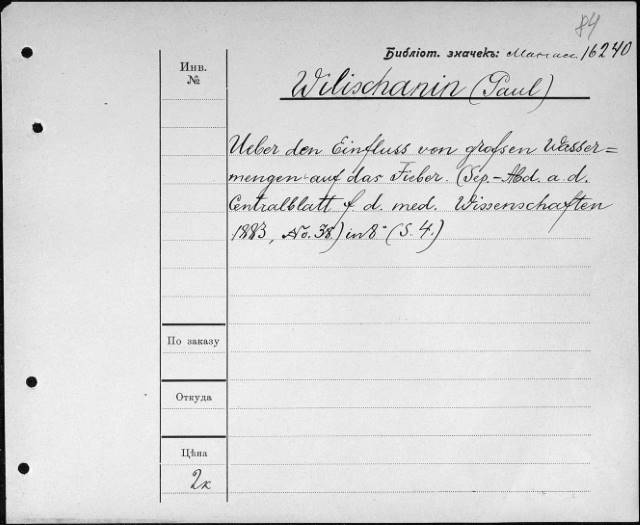 84
Библіот. значекъ: Магазин. 16240
Инв.
№
Wilischanin (Paul)
Ueber den Einfluss von grossen Wasser=
mengen auf das Fieber. (Sep.-Abd. a. d.
Centralblatt f. d. med. Wissenschaften
1883, No. 38.) in 8° (S. 4.)
По заказу
Откуда
Цѣна
2к